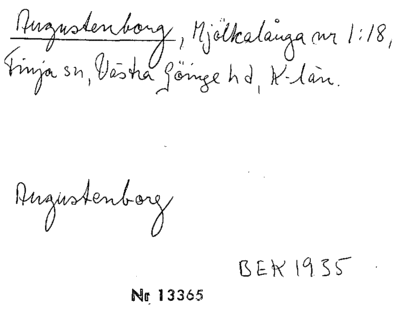 Augustenborg, Mjölkalånga nr 1:18,
Finja sn, Västra Göinge hd, K-län.
Augustenborg
BEK 1935
Nr 13365